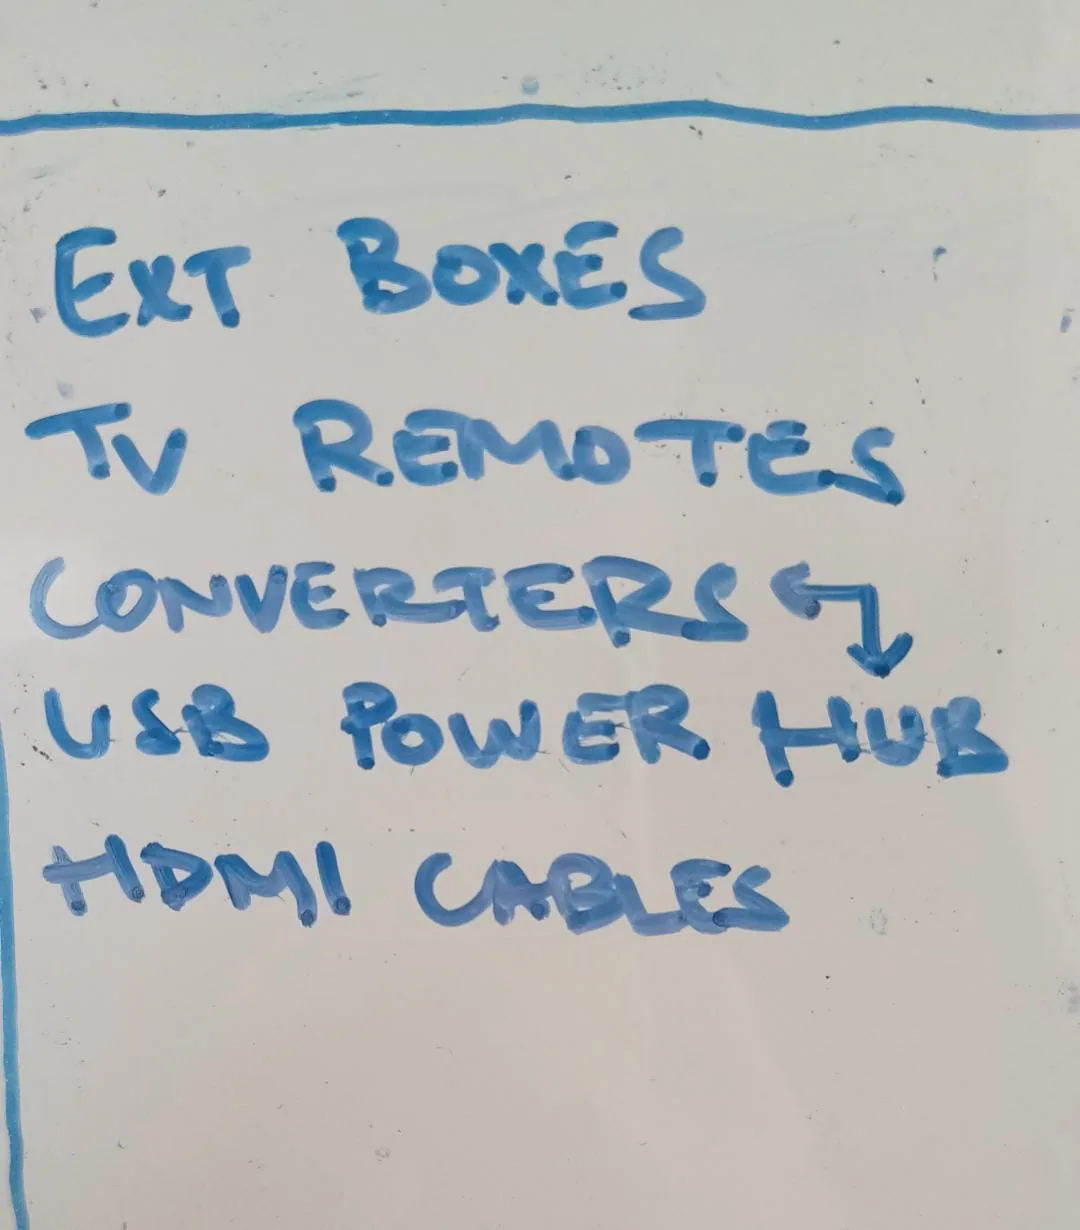 EXT BOXES
TV REMOTES
CONVERTERS
USB POWER HUB
HDMI CABLES